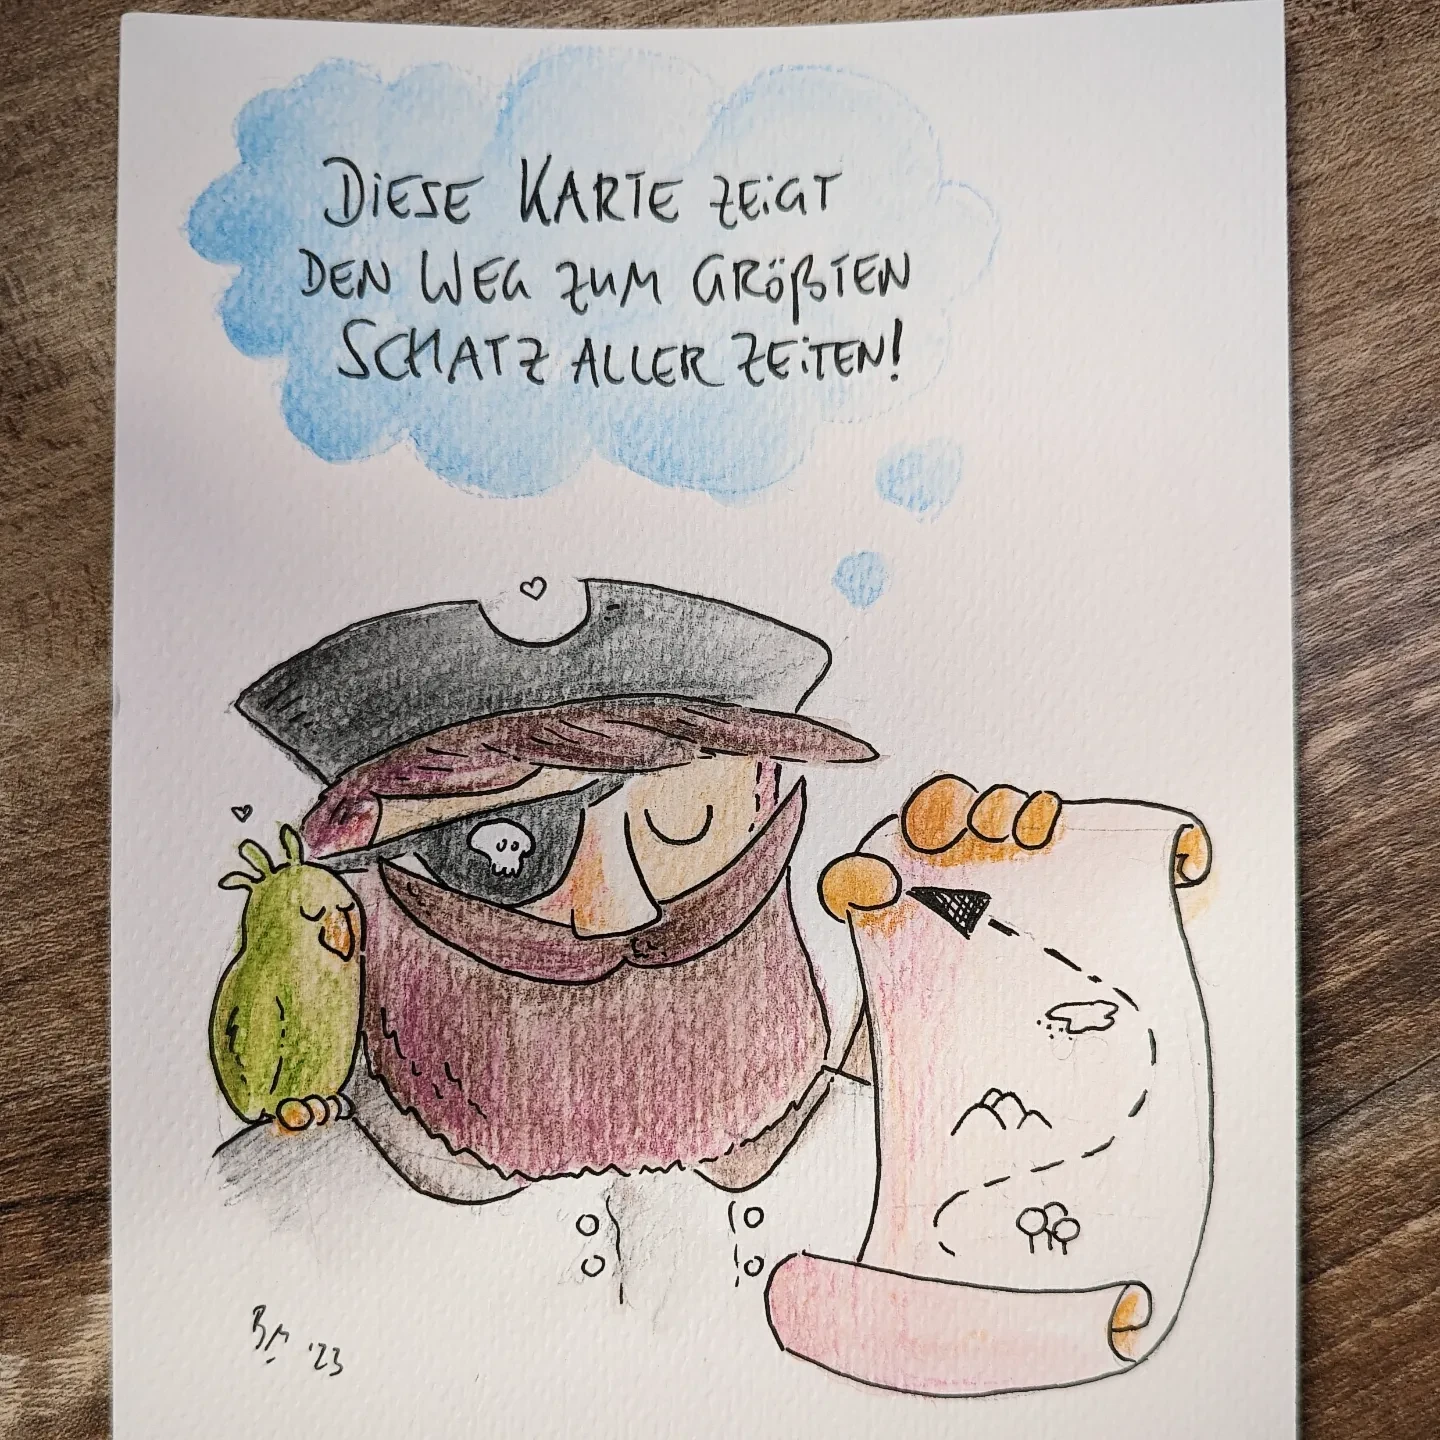 Diese Karte zeigt
den Weg zum größten
Schatz aller Zeiten!
BM '23